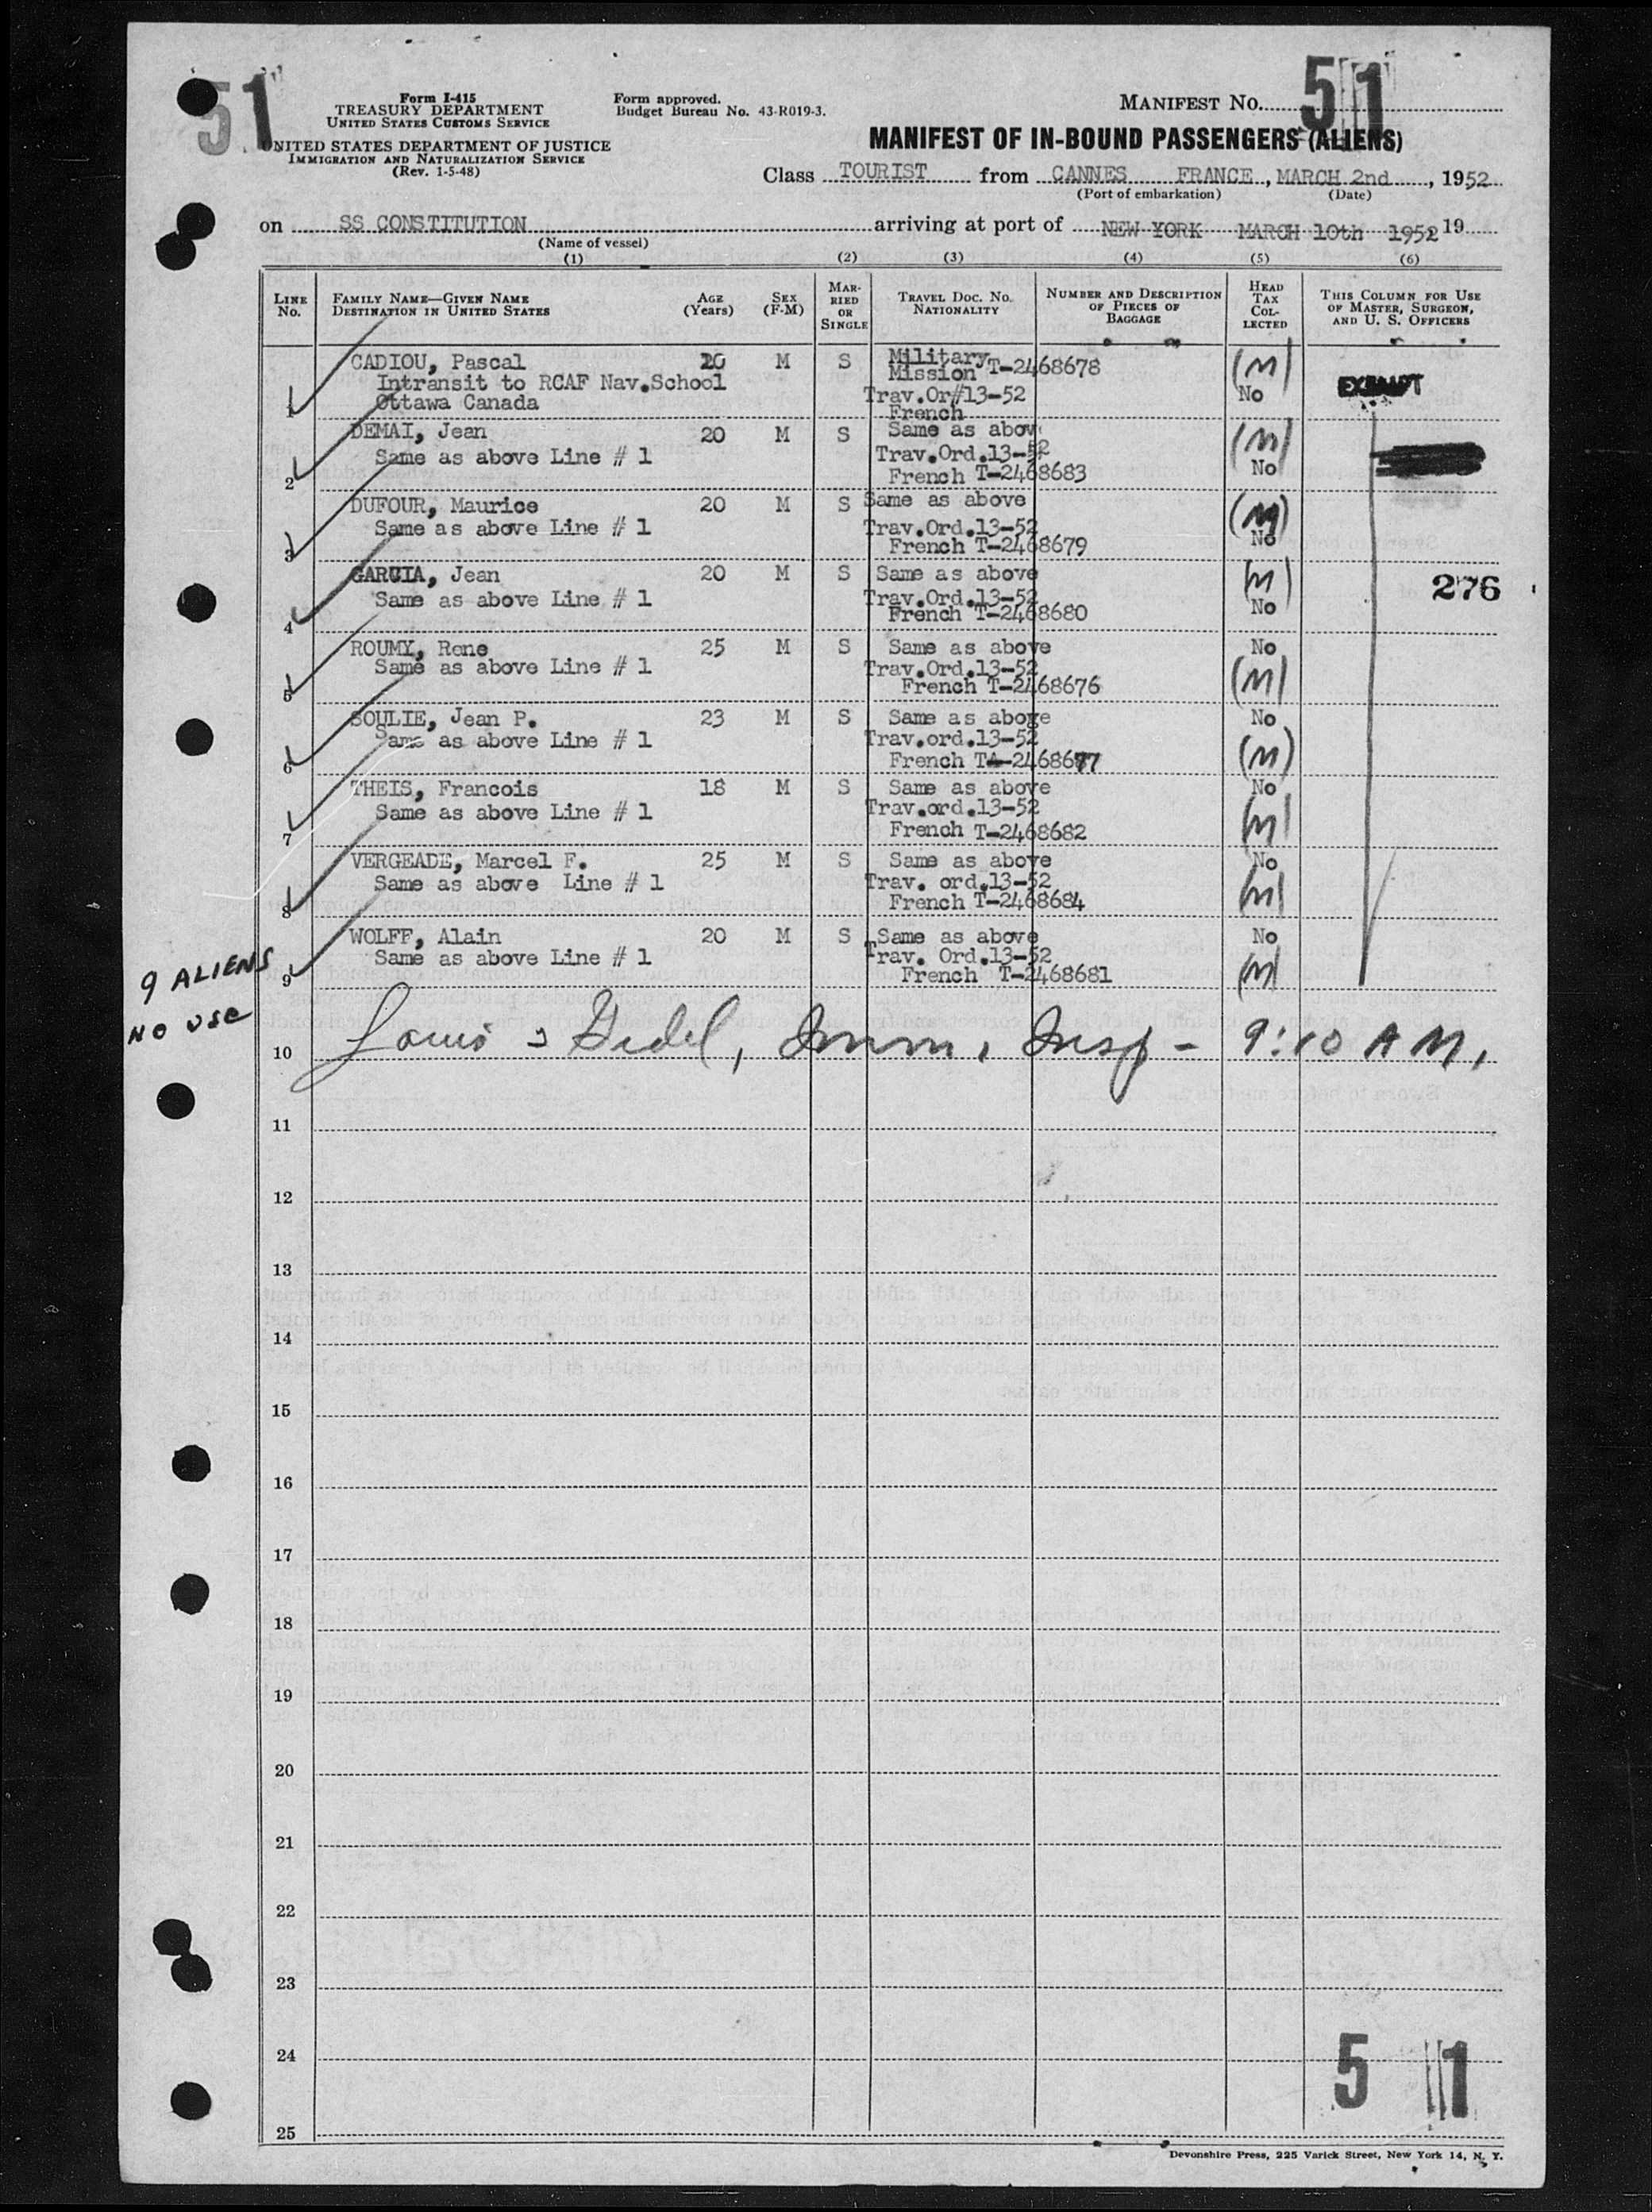 51
Form I-415
TREASURY DEPARTMENT
UNITED STATES CUSTOMS SERVICE
UNITED STATES DEPARTMENT OF JUSTICE
IMMIGRATION AND NATURALIZATION SERVICE
(Rev. 1-5-48)
Form approved.
Budget Bureau No. 43-R019-3.
MANIFEST NO. 51
MANIFEST OF IN-BOUND PASSENGERS (ALIENS)
Class TOURIST from CANNES FRANCE, MARCH 2nd, 1952
(Port of embarkation) (Date)
on SS CONSTITUTION arriving at port of NEW YORK MARCH 10th 1952 19
(Name of vessel)
(1) (2) (3) (4) (5) (6)
LINE No. FAMILY NAME—GIVEN NAME DESTINATION IN UNITED STATES AGE (Years) SEX (F-M) MARRIED OR SINGLE TRAVEL DOC. NO. NATIONALITY NUMBER AND DESCRIPTION OF PIECES OF BAGGAGE HEAD TAX COLLECTED THIS COLUMN FOR USE OF MASTER, SURGEON, AND U. S. OFFICERS
1 CADIOU, Pascal 20 M S Military Mission T-2468678 (M)
Intransit to RCAF Nav.School Trav.Or#13-52 No EXEMPT
Ottawa Canada French
2 DEMAI, Jean 20 M S Same as above (M)
Same as above Line # 1 Trav.Ord.13-52 No
French T-2468683
3 DUFOUR, Maurice 20 M S Same as above (M)
Same as above Line # 1 Trav.Ord.13-52 No
French T-2468679
4 GARCIA, Jean 20 M S Same as above (M)
Same as above Line # 1 Trav.Ord.13-52 No 276
French T-2468680
5 ROUMY, Rene 25 M S Same as above No
Same as above Line # 1 Trav.Ord.13-52 (M)
French T-2468676
6 SOULIE, Jean P. 23 M S Same as above No
Same as above Line # 1 Trav.ord.13-52 (M)
French T-2468677
7 THEIS, Francois 18 M S Same as above No
Same as above Line # 1 Trav.ord.13-52 (M)
French T-2468682
8 VERGEADE, Marcel F. 25 M S Same as above No
Same as above Line # 1 Trav. ord.13-52 (M)
French T-2468684
9 WOLFF, Alain 20 M S Same as above No
Same as above Line # 1 Trav. Ord.13-52 (M)
French T-2468681
9 ALIENS
NO USC
10 Louis Imm. Insp - 9:10 AM.
11
12
13
14
15
16
17
18
19
20
21
22
23
24
51
25
Devonshire Press, 225 Varick Street, New York 14, N. Y.